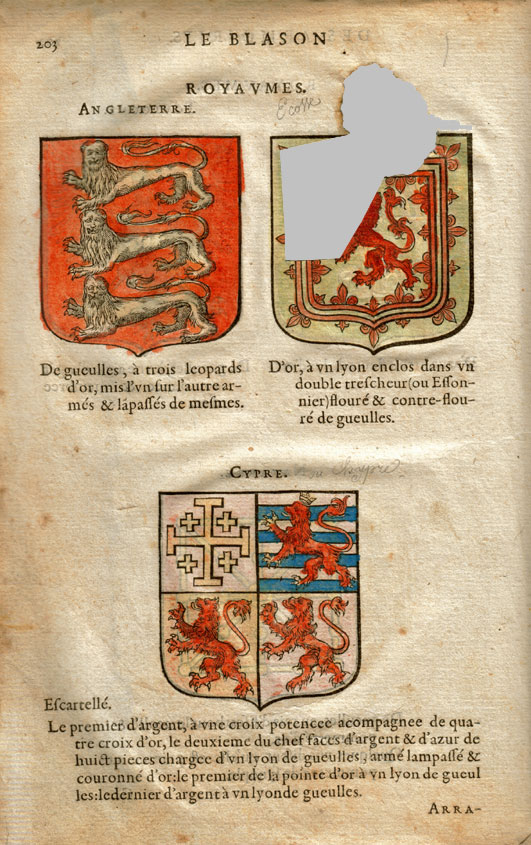 203
LE BLASON
ROYAVMES.
ANGLETERRE.
Ecosse
De gueulles, à trois leopards
d'or, mis l'vn sur l'autre ar-
més & lápassés de mesmes.
D'or, à vn lyon enclos dans vn
double trescheur (ou Esson-
nier) flouré & contre-flou-
ré de gueulles.
CYPRE.
ou Chypre
Escartellé.
Le premier d'argent, à vne croix potencee acompagnee de qua-
tre croix d'or, le deuxieme du chef faces d'argent & d'azur de
huict pieces chargea d'vn lyon de gueulles, armé lampassé &
couronné d'or: le premier de la pointe d'or à vn lyon de gueul
les: le dernier d'argent à vn lyon de gueulles.
ARRA-